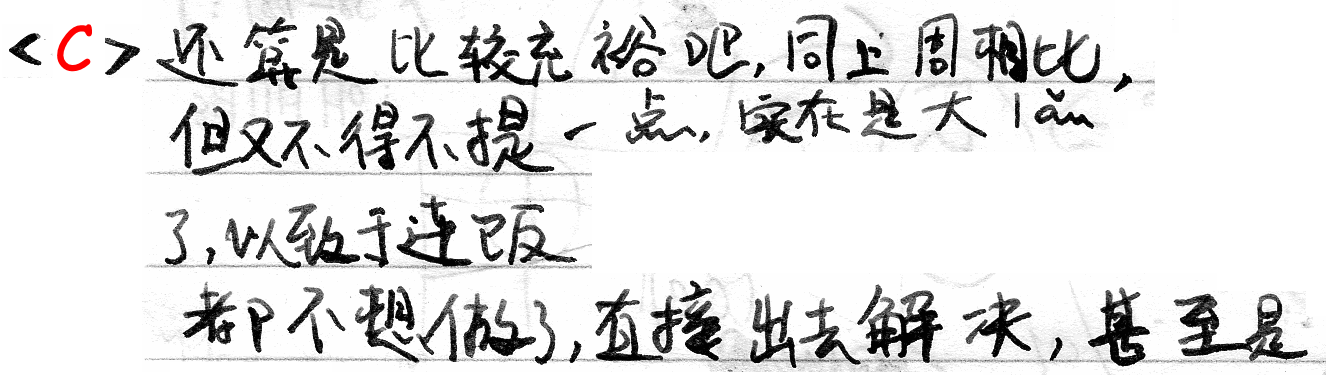 <C> 还算是比较充裕吧,同上周相比,
但又不得不提一点,实在是大lǎn
了,以致于连饭
都不想做了,直接出去解决,甚至是